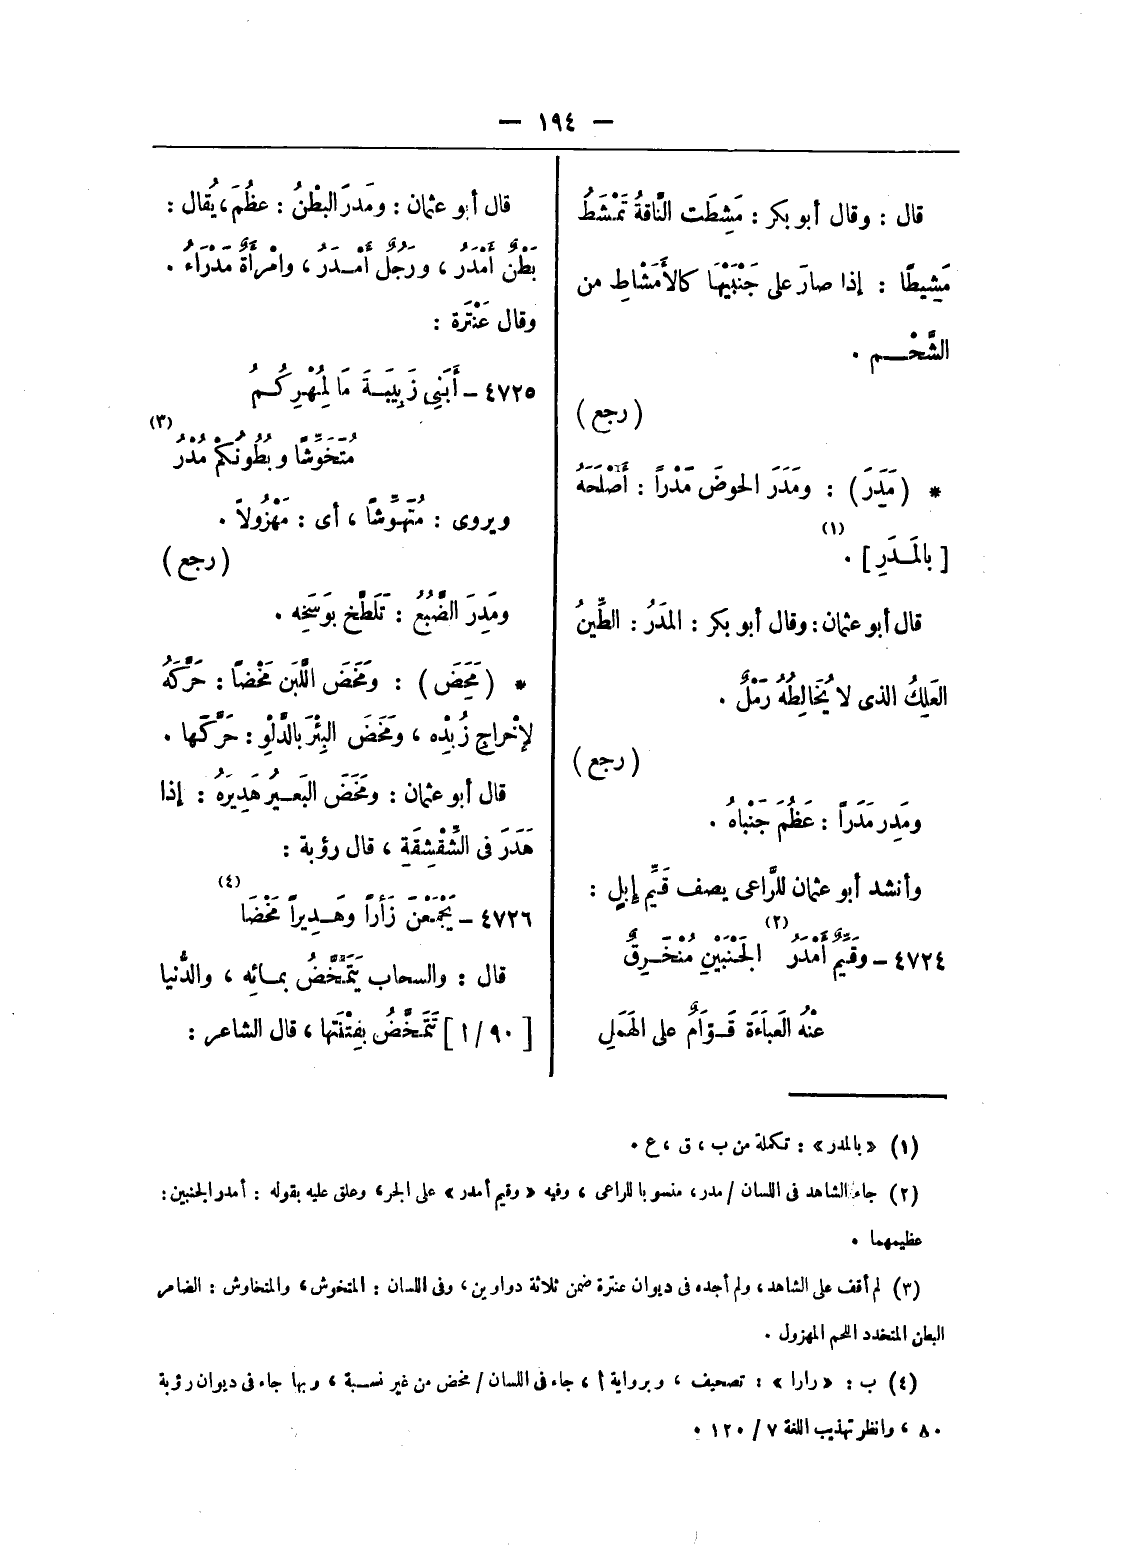 — ١٩٤ —
قال : وقال أبو بكر : مَشِطَت النَّاقةُ تَمْشَطُ
مَشِيطًا : إذا صارَ على جَنْبَيْهَا كالأَمْشَاطِ من
الشَّحْم .
( رجع )
* ( مَدَرَ ) : ومَدَرَ الحوضَ مَدْراً : أَصْلَحَهُ
[ بالمَدَرِ ] (١) .
قال أبو عثمان : وقال أبو بكر : المَدَرُ : الطِّينُ
العَلِكُ الذى لا يُخَالِطُهُ رَمْلٌ .
( رجع )
ومَدِر مَدَراً : عَظُمَ جَنْباهُ .
وأنشد أبو عثمان للرَّاعى يصف قَيِّم إبلٍ :
٤٧٢٤ – وقَيِّمٌ أَمْدَرُ الجَنْبَيْنِ مُنْخَرِقٌ (٢)
عنْهُ العَبَاءَة قَوَّامٌ على الهَمَلِ
قال أبو عثمان : ومَدَرَ البطْنُ : عظُمَ ، يُقال :
بَطْنٌ أَمْدَرُ ، ورَجُلٌ أَمْدَرُ ، وامْرأةٌ مَدْرَاءُ .
وقال عَنْتَرة :
٤٧٢٥ – أَبَنِى زَبِيبَةَ مَا لِمُهْرِكُمُ
مُتَخَوِّشًا وبُطُونُكُمْ مُدْرُ (٣)
ويروى : مُتَهَوِّشًا ، أى : مَهْزُولاً .
( رجع )
ومَدِرَ الضَّبُعُ : تَلَطَّخ بوَسَخِه .
* ( مَخَضَ ) : ومَخَضَ اللَّبَن مَخْضًا : حَرَّكَهُ
لإخْراجِ زُبْدِه ، ومَخَضَ البِئْرَ بالدَّلْوِ : حَرَّكَها .
قال أبو عثمان : ومَخَضَ البَعيرُ هَدِيرَهُ : إذا
هَدَرَ فى الشِّقْشِقَةِ ، قال رؤبة :
٤٧٢٦ – يَجْمَعْنَ زَأراً وهَديراً مَخْضَا (٤)
قال : والسحاب يَتَمَخَّضُ بمائه ، والدُّنيا
[ ٩٠ / أ ] تَتَمَخَّضُ بفِتْنَتها ، قال الشاعر :
(١) « بالمدر » : تكملة من ب ، ق ، ع .
(٢) جاء الشاهد فى اللسان / مدر ، منسوبا للراعى ، وفيه « وقيم أمدر » على الجر ، وعلق عليه بقوله : أمدر الجنبين :
عظيمهما .
(٣) لم أقف على الشاهد ، ولم أجده فى ديوان عنترة ضمن ثلاثة دواوين ، وفى اللسان : المتخوش ، والمتخاوش : الضامر
البطن المتخدد اللحم المهزول .
(٤) ب : « رارا » : تصحيف ، وبرواية أ ، جاء فى اللسان / مخض من غير نسبة ، وبها جاء فى ديوان رؤبة
٨٠ ، وانظر تهذيب اللغة ٧ / ١٢٠ .